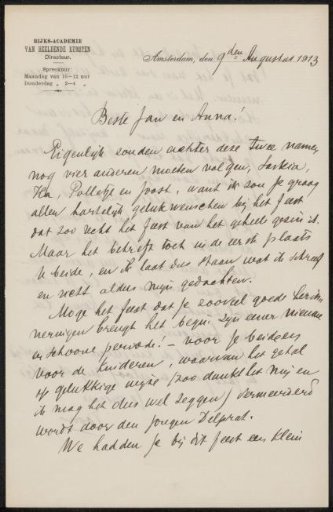 RIJKS-ACADEMIE
VAN BEELDENDE KUNSTEN
Directeur.
Spreekuur
Maandag van 10-12 uur
Donderdag „ 2-4 „
Amsterdam, den 9den Augustus 1913
Beste Jan en Anna!
Eigenlijk zouden achter deze twee namen
nog vier anderen moeten volgen, Saskia,
Polletje en Joost, want ik zou je graag
allen hartelijk gelukwenschen bij het feest
dat zoo recht het feest van het geheele gezin is.
Maar het betreft toch in de eerste plaats
U beide, en ik laat dus staan wat ik schreef
en richt aldus mijn gedachten.
Moge het feest dat je zooveel goede herin-
neringen brengt het begin zijn eener nieuwe
en schoone periode! - voor je beiden
voor de kinderen, waarvan het getal
op gelukkige wijze (zoo dunkt het mij en
ik mag het dus wel zeggen) vermeerderd
wordt door den jongen Delprat.
We hadden je bij dit feest een klein